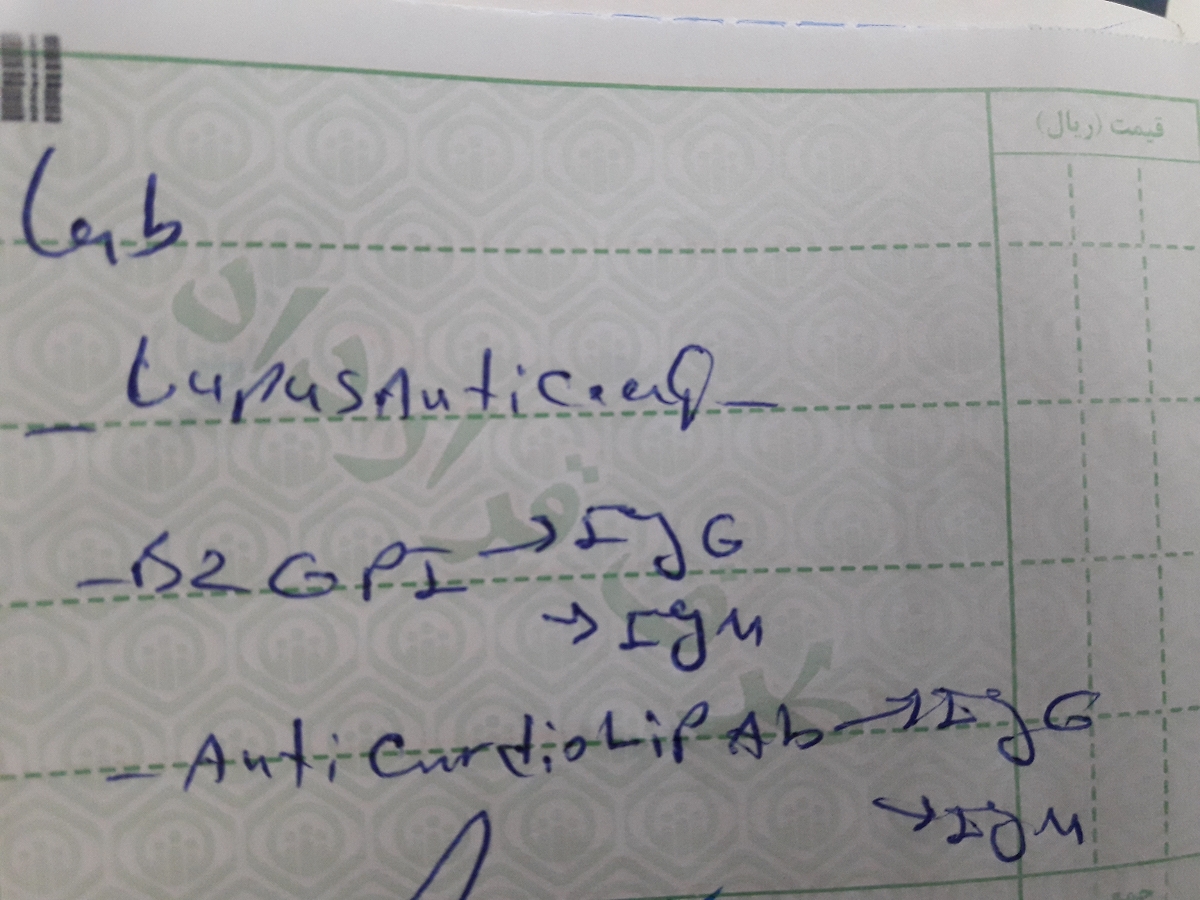 قیمت (ریال)
Lab
- Lupus Anticoag -
- B2 GPI → IgG
→ IgM
- Anti Cardiolip Ab → IgG
→ IgM